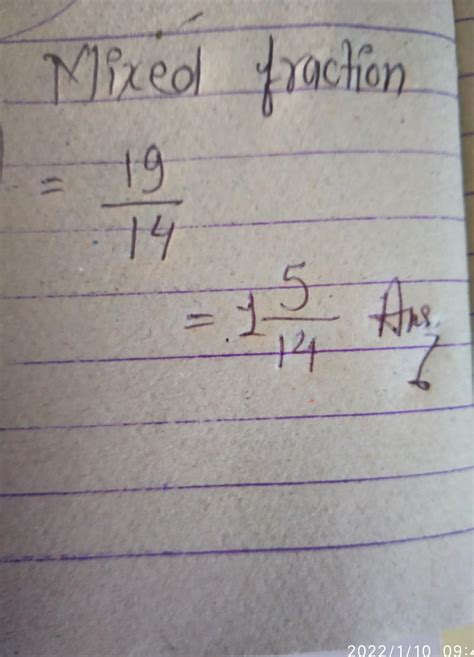 Mixed fraction
= 19/14
= 1 5/14 Ans.
2022/1/10 09: